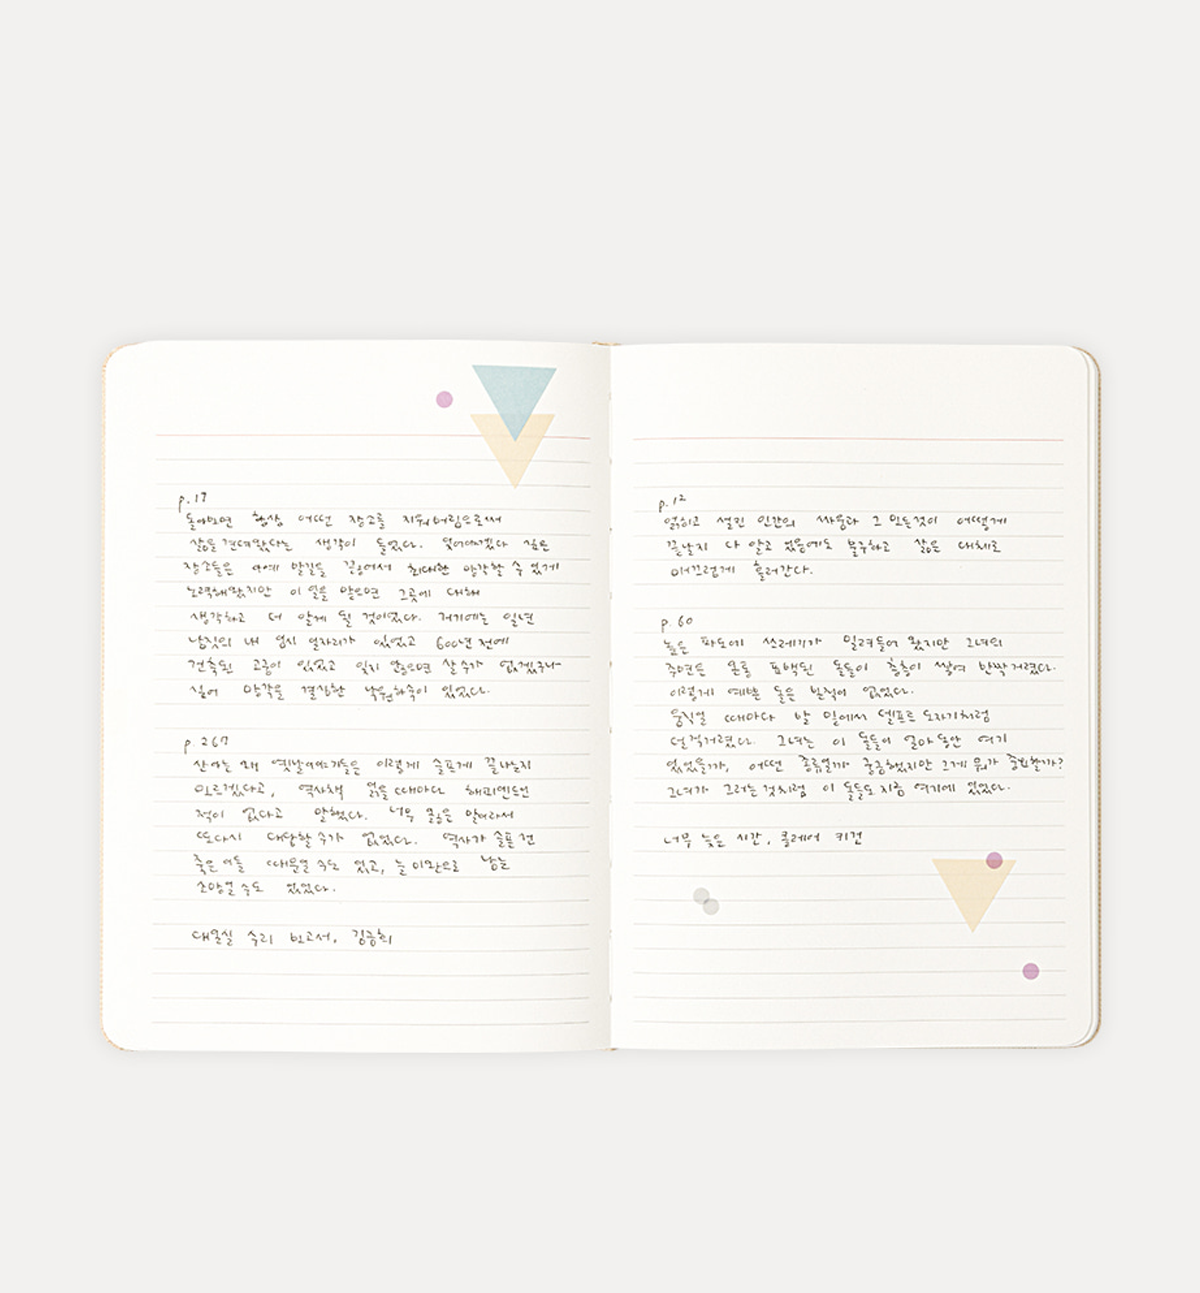 p.17
돌아보면 항상 어떤 장소를 지워버림으로써
삶을 견뎌왔다는 생각이 들었다. 잊어야겠다 싶은
장소들은 아예 발길을 끊어서 최대한 망각할 수 있게
노력해왔지만 이 일을 맡으면 그곳에 대해
생각하고 더 알게 될 것이었다. 거기에는 일년
남짓의 내 임시 일자리가 있었고 600년 전에
건축된 고궁이 있었고 잊지 않으면 살 수가 없겠구나
싶어 망각을 결심한 낙원하숙이 있었다.
p.267
산아는 왜 옛날이야기들은 이렇게 슬프게 끝나는지
모르겠다고, 역사책 읽을 때마다 해피엔드인
적이 없다고 말했다. 너무 옳은 말이라서
또다시 대답할 수가 없었다. 역사가 슬픈 건
죽은 이들 때문일 수도 있고, 늘 미완으로 남는
소망일 수도 있었다.
대온실 수리 보고서, 김금희
p.12
얽히고 설킨 인간의 싸움과 그 모든것이 어떻게
끝날지 다 알고 있음에도 불구하고 삶은 대체로
매끄럽게 흘러간다.
p.60
높은 파도에 쓰레기가 밀려들어 왔지만 그녀의
주변은 온통 표백된 돌들이 층층이 쌓여 반짝거렸다.
이렇게 예쁜 돌은 본적이 없었다.
움직일 때마다 발 밑에서 델프트 도자기처럼
덜걱거렸다. 그녀는 이 돌들이 얼마동안 여기
있었을까, 어떤 종류일까 궁금했지만 그게 뭐가 중요할까?
그녀가 그러는것처럼 이 돌들도 지금 여기에 있었다.
너무 늦은 시간, 클레어 키건